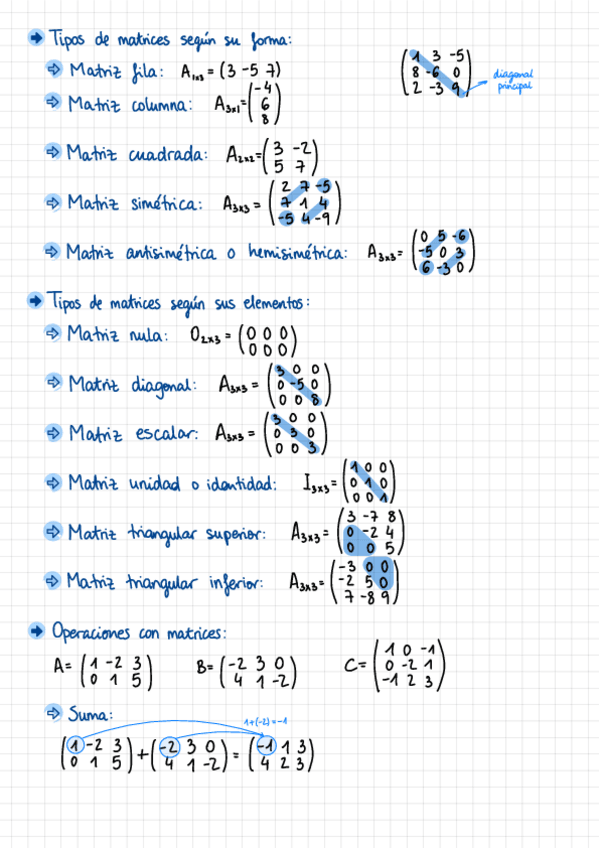 Tipos de matrices según su forma:
Matriz fila: A₁ₓ₃ = (3 -5 7)
1 3 -5
8 -6 0
2 -3 9
diagonal
principal
Matriz columna: A₃ₓ₁ =
-4
6
8
Matriz cuadrada: A₂ₓ₂ =
3 -2
5 7
Matriz simétrica: A₃ₓ₃ =
2 7 -5
7 1 4
-5 4 -9
Matriz antisimétrica o hemisimétrica: A₃ₓ₃ =
0 5 -6
-5 0 3
6 -3 0
Tipos de matrices según sus elementos:
Matriz nula: O₂ₓ₃ =
0 0 0
0 0 0
Matriz diagonal: A₃ₓ₃ =
3 0 0
0 -5 0
0 0 8
Matriz escalar: A₃ₓ₃ =
3 0 0
0 3 0
0 0 3
Matriz unidad o identidad: I₃ₓ₃ =
1 0 0
0 1 0
0 0 1
Matriz triangular superior: A₃ₓ₃ =
3 -7 8
0 -2 4
0 0 5
Matriz triangular inferior: A₃ₓ₃ =
-3 0 0
-2 5 0
7 -8 9
Operaciones con matrices:
A =
1 -2 3
0 1 5
B =
-2 3 0
4 1 -2
C =
1 0 -1
0 -2 1
-1 2 3
Suma:
1+(-2)=-1
1 -2 3
0 1 5
+
-2 3 0
4 1 -2
=
-1 1 3
4 2 3